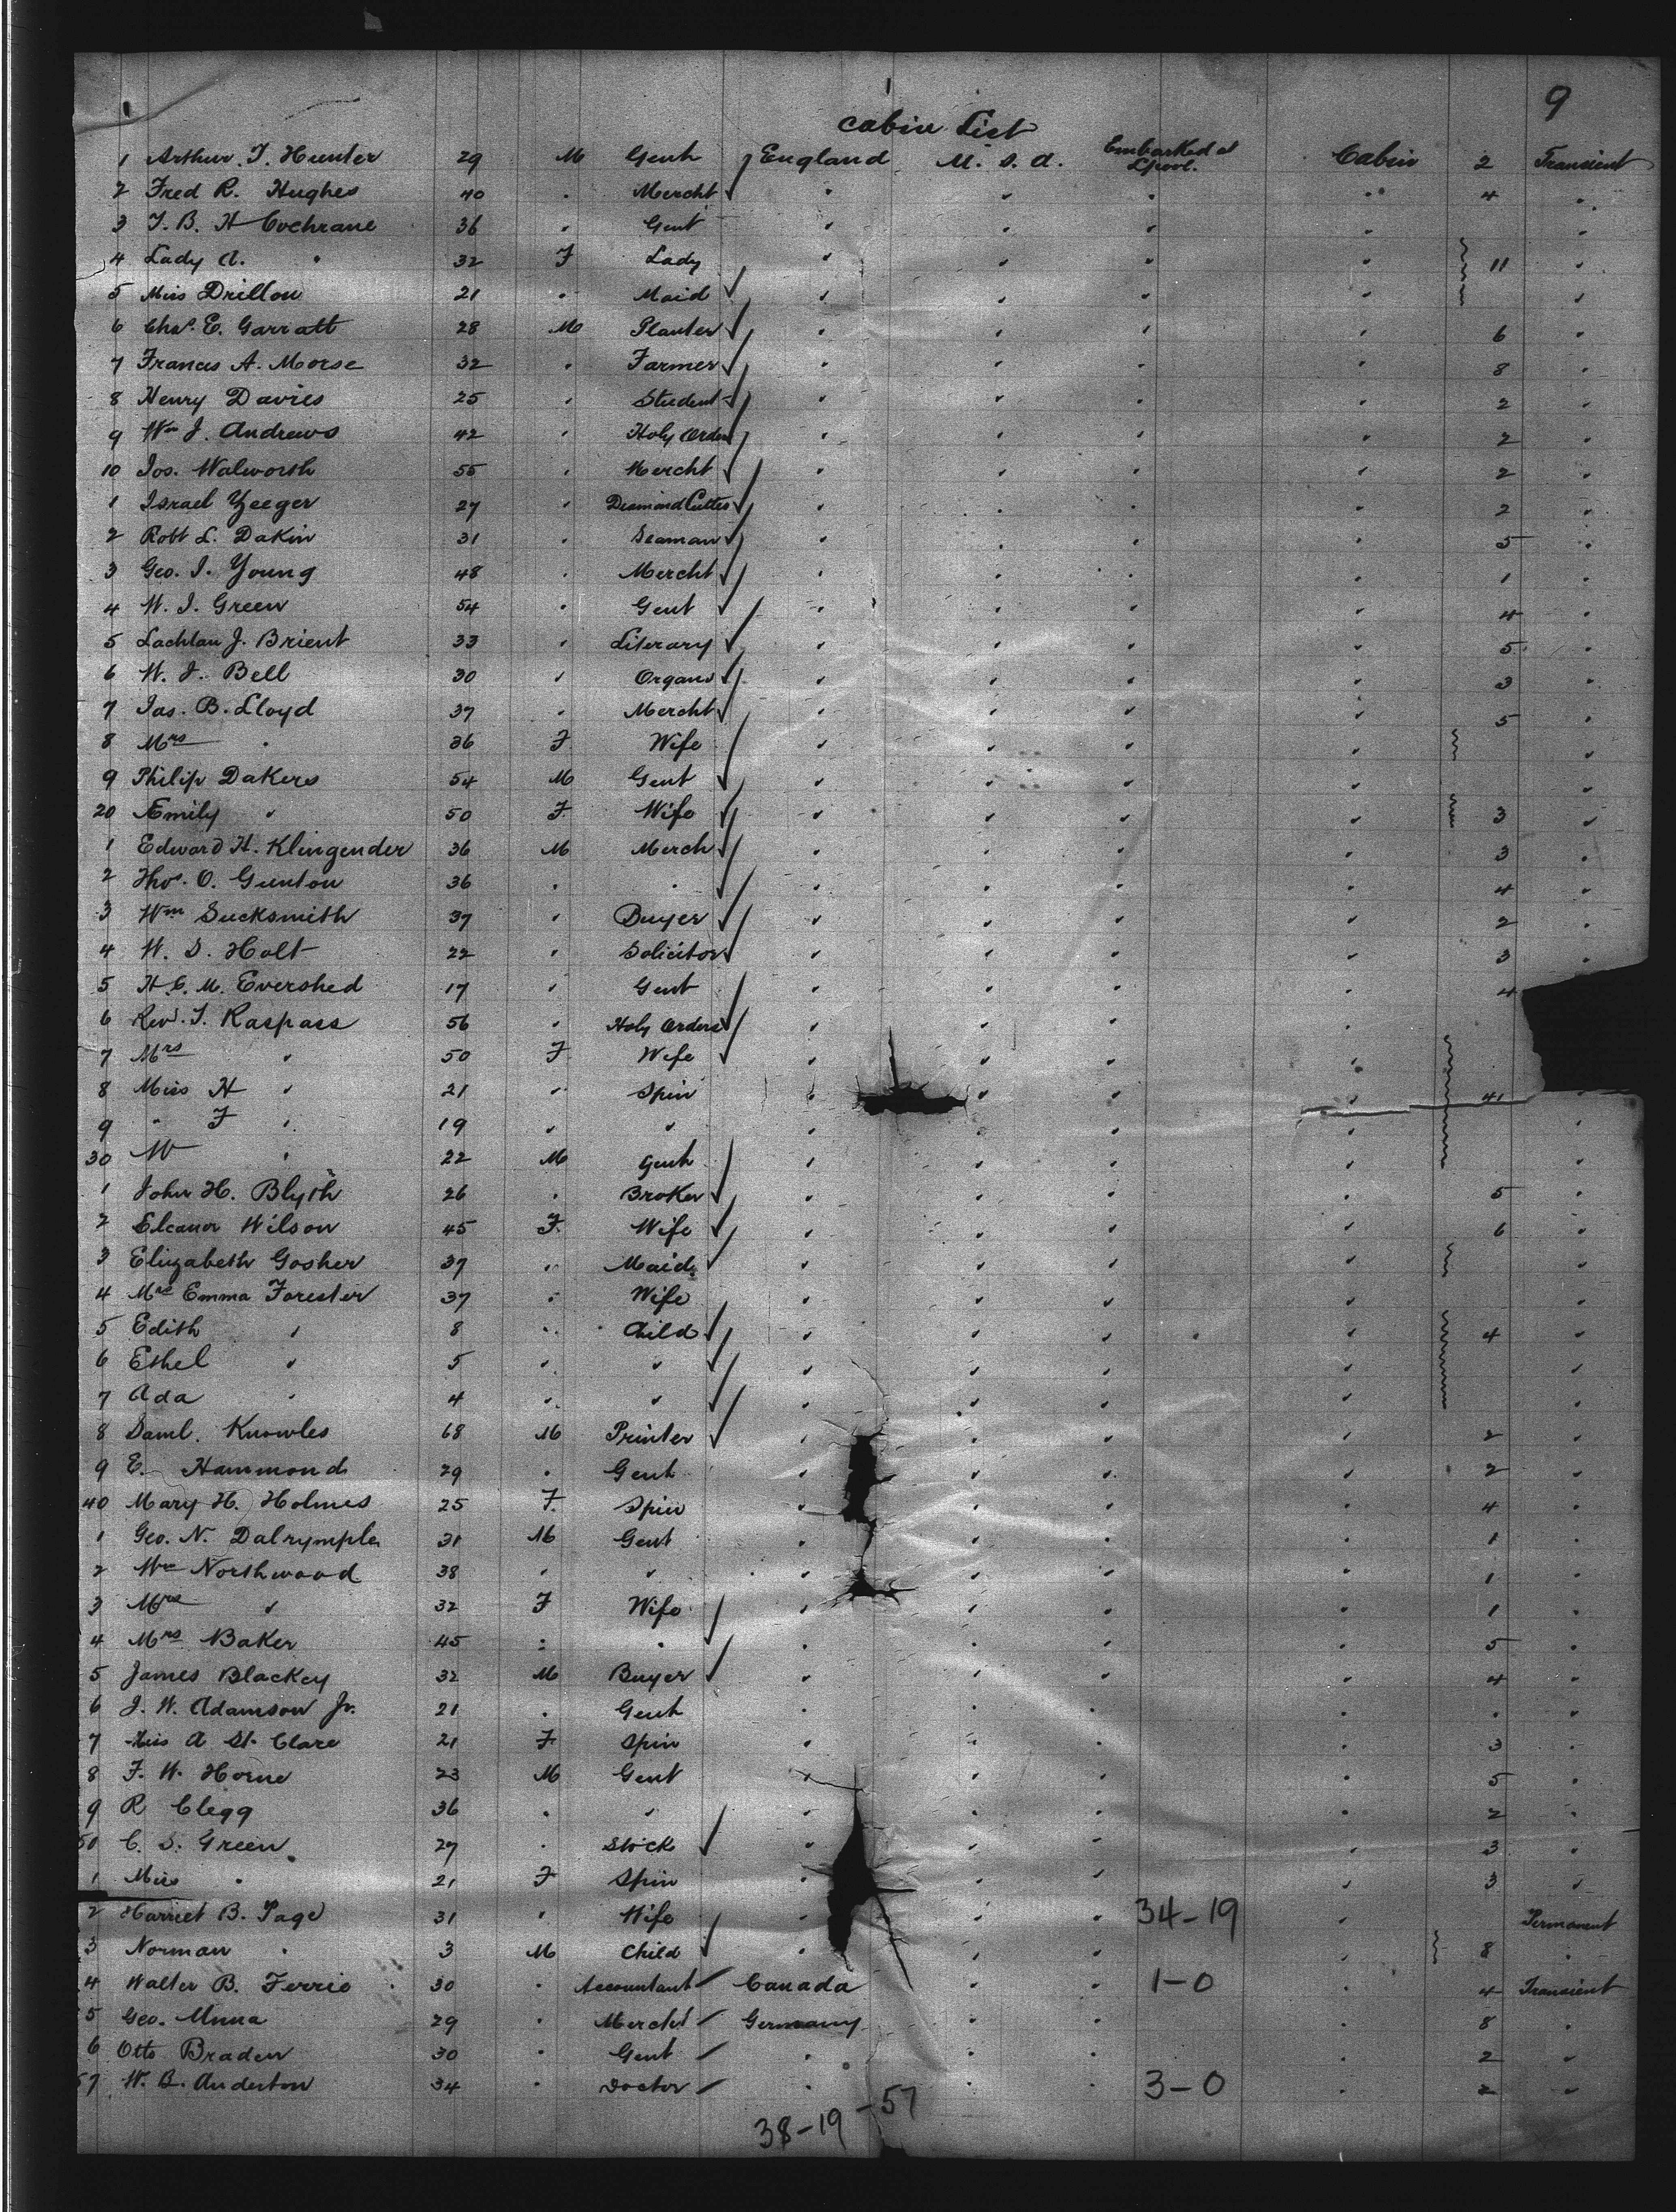 9
Cabin List
1 Arthur. T. Hunter 29 M Gent England U. S. A. Embarked at Lpool. Cabin 2 Transient
2 Fred R. Hughes 40 " Mercht " " " " 4 "
3 T. B. H Cochrane 36 " Gent " " " " "
4 Lady A. " 32 F Lady " " " " 11 "
5 Miss Drillon 21 " Maid " " " " "
6 Chas. E. Garratt 28 M Planter " " " " 6 "
7 Francis A. Morse 32 " Farmer " " " " 8 "
8 Henry Davies 25 " Student " " " " 2 "
9 Wm J. Andrews 42 " Holy Orders " " " " 2 "
10 Jos. Walworth 55 " Mercht " " " " 2 "
1 Israel Yeeger 27 " Diamond Cutter " " " " 2 "
2 Robt L. Dakin 31 " Seaman " " " " 5 "
3 Geo. I. Young 48 " Mercht " " " " 1 "
4 W. I. Green 54 " Gent " " " " 4 "
5 Lachlan J. Brient 33 " Literary " " " " 5 "
6 W. J. Bell 30 " Organs " " " " 3 "
7 Jas. B. Lloyd 37 " Mercht " " " " 5 "
8 Mrs " 36 F Wife " " " " "
9 Philip Dakers 54 M Gent " " " " "
20 Emily " 50 F Wife " " " " 3 "
1 Edward H. Klingender 36 M Merch " " " " 3 "
2 Thos. O. Gunton 36 " " " " " " 4 "
3 Wm Sucksmith 37 " Buyer " " " " 2 "
4 W. S. Holt 22 " Solicitor " " " " 3 "
5 H. C. M. Evershed 17 " Gent " " " " 4
6 Revd. T. Raspass 56 " Holy Orders " " " "
7 Mrs " 50 F Wife " " " "
8 Miss H " 21 " Spin " " " " 41 "
9 " F " 19 " " " " " "
30 W " 22 M Gent " " " " "
1 John H. Blyth 26 " Broker " " " " 5 "
2 Eleanor Wilson 45 F Wife " " " " 6 "
3 Elizabeth Gosher 37 " Maid " " " " "
4 Mrs Emma Forester 37 " Wife " " " " "
5 Edith " 8 " Child " " " " 4 "
6 Ethel " 5 " " " " " " "
7 Ada " 4 " " " " " " "
8 Saml. Knowles 68 M Printer " " " " 2 "
9 E. Hammond 29 " Gent " " " " 2 "
40 Mary H. Holmes 25 F Spin " " " " 4 "
1 Geo. N. Dalrymple 31 M Gent " " " " 1 "
2 Wm Northwood 38 " " " " " " 1 "
3 Mrs " 32 F Wife " " " 1 "
4 Mrs Baker 45 " " " " " " 5 "
5 James Blackey 32 M Buyer " " " " 4 "
6 J. W. Adamson Jr. 21 " Gent " " " " " "
7 Miss A St. Clare 21 F Spin " " " " 3 "
8 F. W. Horne 23 M Gent " " " " 5 "
9 R Clegg 36 " " " " " " 2 "
50 C. S. Green 27 " Stock " " " " 3 "
1 Miss " 21 F Spin " " " " 3 "
2 Harriet B. Page 31 " Wife " " " 34-19 " Permanent
3 Norman " 3 M Child " " " " 8 "
4 Walter B. Ferrie 30 " Accountant Canada " " 1-0 " 4 Transient
5 Geo. Munna 29 " Mercht Germany " " " 8 "
6 Otto Braden 30 " Gent " " " " 2 "
57 W. B. Anderton 34 " Doctor " " " 3-0 " 2 "
38-19-57